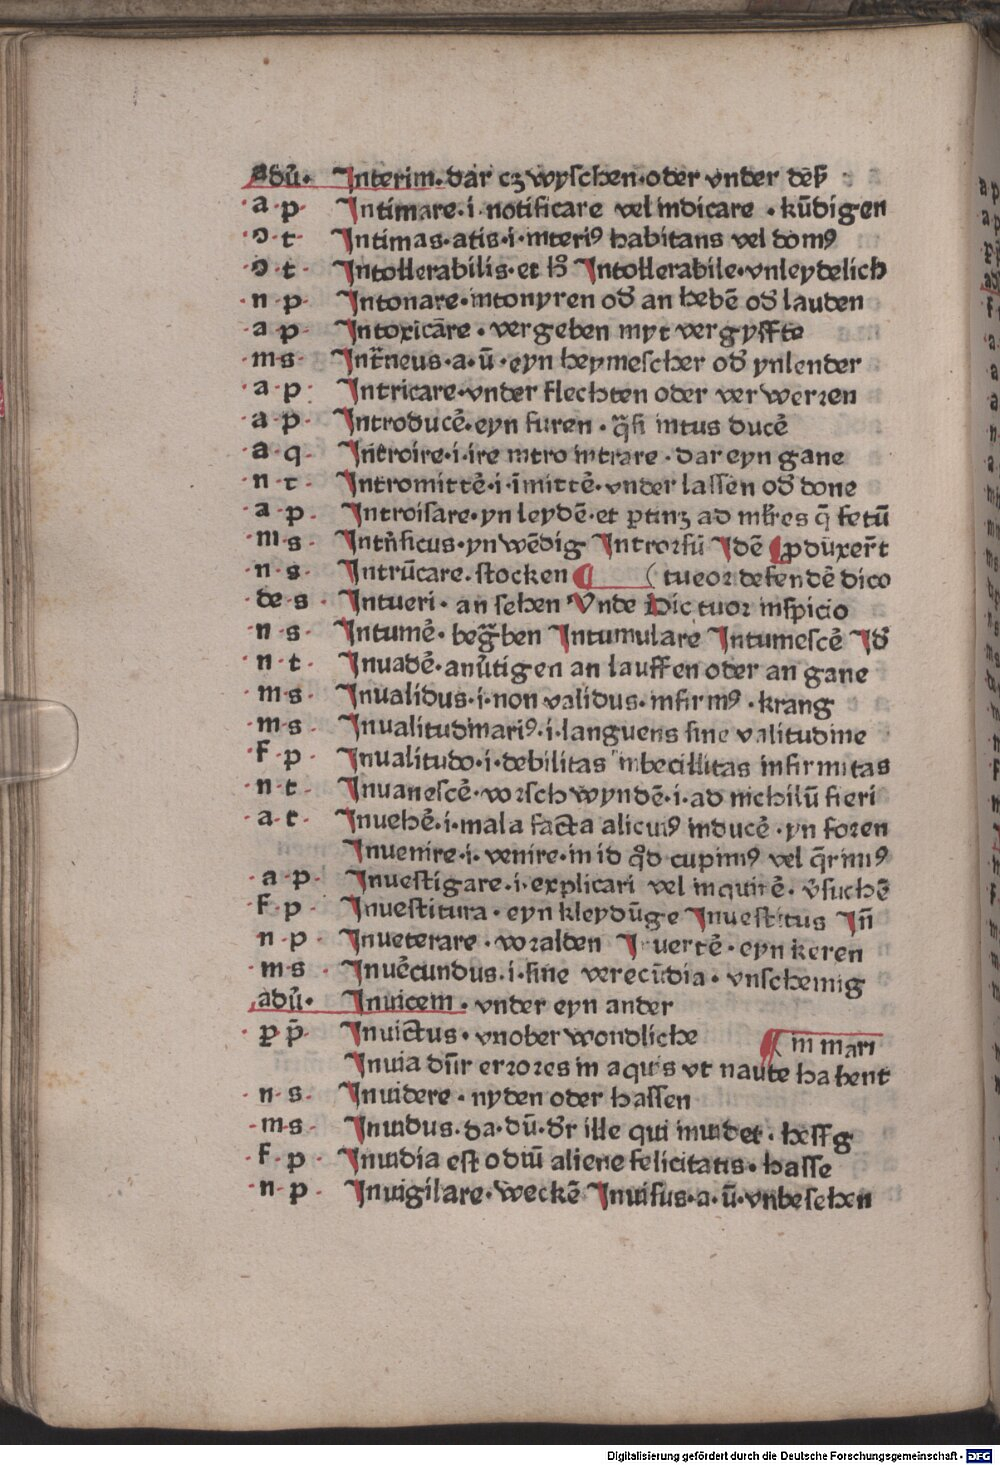 adu̾· Interim·dar cʒ wyſchen·oder vnder dēſ
a p· Intimare·i·notificare vel indicare·kūdigen
ↄ t· Intimas·atis·i·interiꝰ habitans vel domꝰ
ↄ t· Intollerabilis·et Intollerabile·vnleydelich
n p· Intonare·intonyren od̕ an hebē od̕ lauden
a p· Intoxicāre·vergeben myt vergyffte
m s· Int̄neus·a·ū·eyn heymeſcher od̕ ynlender
a p· Intricare·vnder flechten oder ver werꝛen
a p· Introducē·eyn furen·q̄ſi intus ducē
a q· Introire·i·ire intro intrare·dar eyn gane
n t· Intromittē·i·īmittē·vnder laſſen od̕ done
a p· Introiſare·yn leydē·et ꝑtinʒ ad q̄ fetū
m s· yn wēdig Introꝛſū Idē ¶ꝓduxer̄t
n s· Intrūcare·ſtocken ¶ (tueoꝛ defendē dico
de s· Intueri·an ſehen Vnde Dic tuoꝛ inſpicio
n s· Intumē·begᷓben Intumulare Intumeſcē Id̕
n t· Inuadē·anu̾tigen an lauffen oder an gane
m s· Inualidus·i·non validus·infirmꝰ·krang
m s· Inualitudinariꝰ·i·languens ſine valitudine
f p· Inualitudo·i·debilitas inbecillitas infirmitas
n t· Inuaneſcē·voꝛſchwyndē·i·ad nichilū fieri
a t· Inuehē·i·mala facta alicuiꝰ inducē·yn foꝛen
Inuenire·i·venire·in id qd̕ cupimꝰ vel q̄rimꝰ
a p· Inueſtigare·i·explicari vel inquirē·v̕ſuchē
f p· Inueſtitura·eyn kleydūge Inueſtitus In̄
n p· Inueterare·voꝛalden Inuertē·eyn keren
m s· Inuēcundus·i·ſine verecūdia·vnſchemig
adu̾· Inuicem·vnder eyn ander
ꝑ p̄· Inuictus·vnober wondliche ¶ in mari
Inuia dn̄r erꝛoꝛes in aquis vt naute habent
n s· Inuidere·nyden oder haſſen
m s· Inuidus·da·dū·dr̄ ille qui inuidet·heſſg
f p· Inuidia eſt odiū aliene felicitatis·haſſe
n p· Inuigilare·weckē Inuiſus·a·ū·vnbeſehen
Digitalisierung gefördert durch die Deutsche Forschungsgemeinschaft - DFG